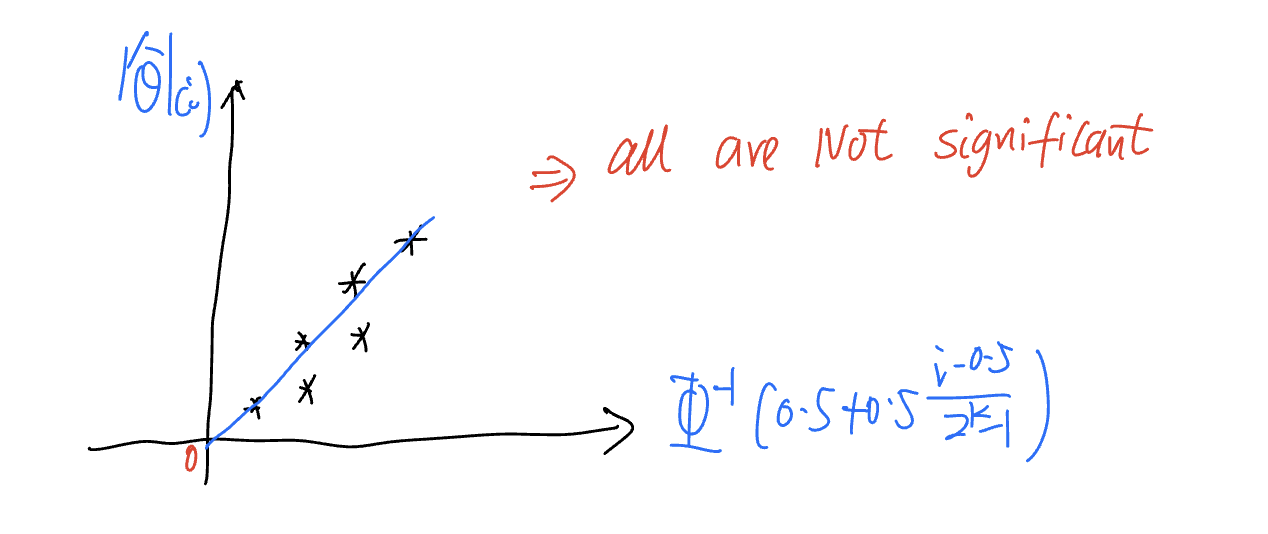 |θ̂|(i)
⇒ all are Not significant
Φ⁻¹ (0.5+0.5 (i-0.5)/(2ᵏ-1))
0